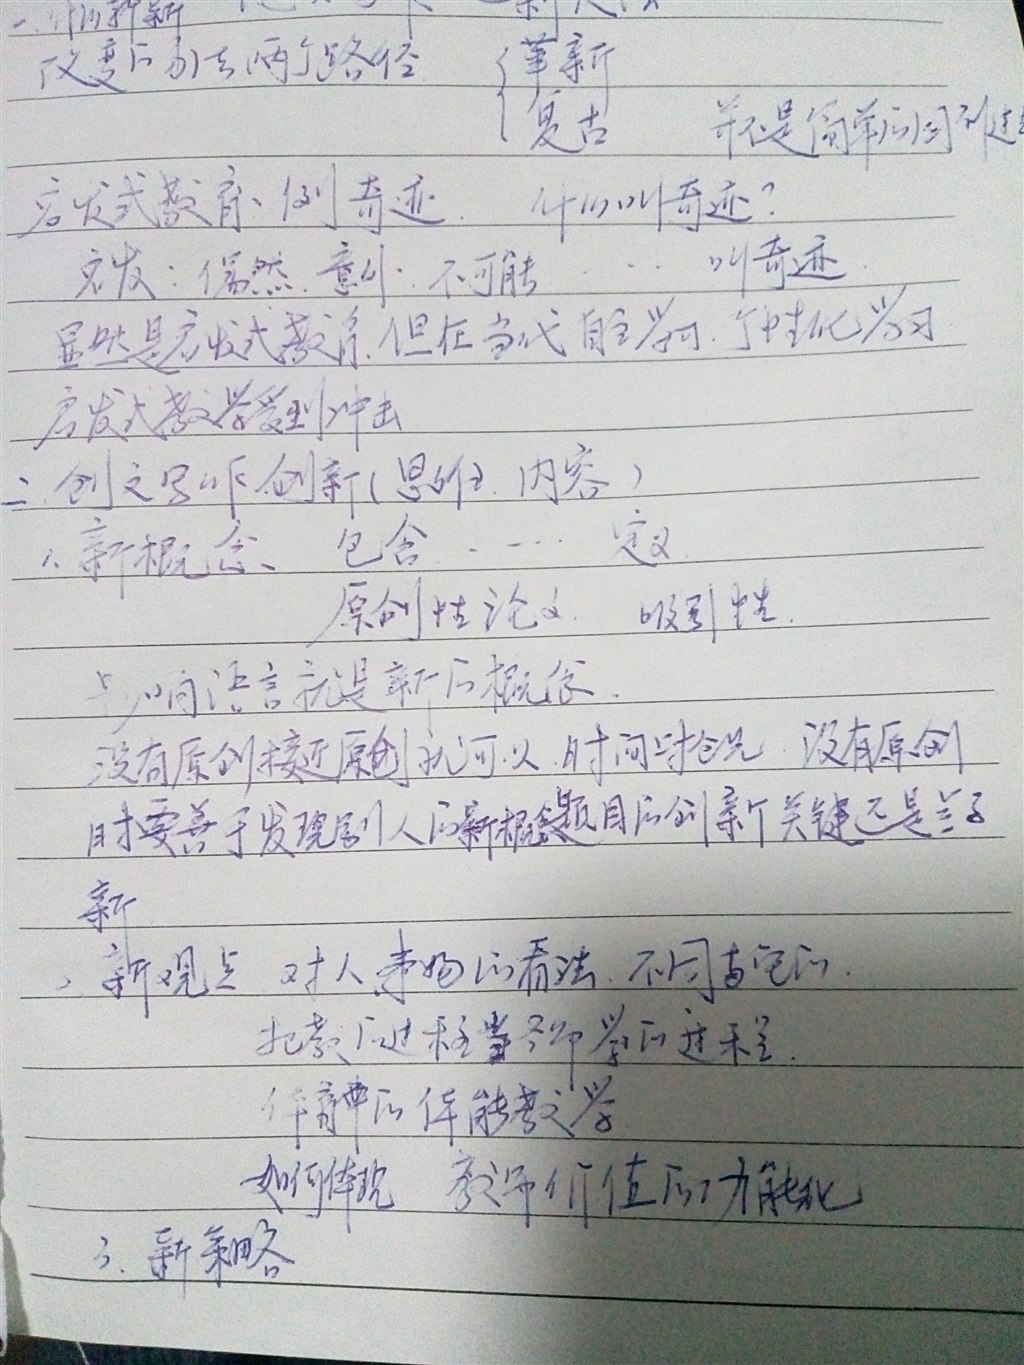 改变的方法两个路径 {革新
复古 并不是简单的回到过去
启发式教育、例奇迹. 什么叫奇迹?
启发:偶然.意外.不可能 ‥‥ 叫奇迹.
显然是启发式教育.但在当代自主学习.个性化学习
启发式教学受到冲击
二.创文写作.创新(思维.内容)
1.新概念、 包含 ‥‥ 定义.
原创性论文. 吸引性.
影响语言就是新的概念.
没有原创接近原创就可以.时间与抢先.没有原创
时要善于发现别人的新概念题目的创新关键还是
新.
2.新观点 对人事物的看法.不同寻它的.
把教的过程当 学的过程.
体育 的体能教学
如何体现 教师价值的功能化
3.新策略